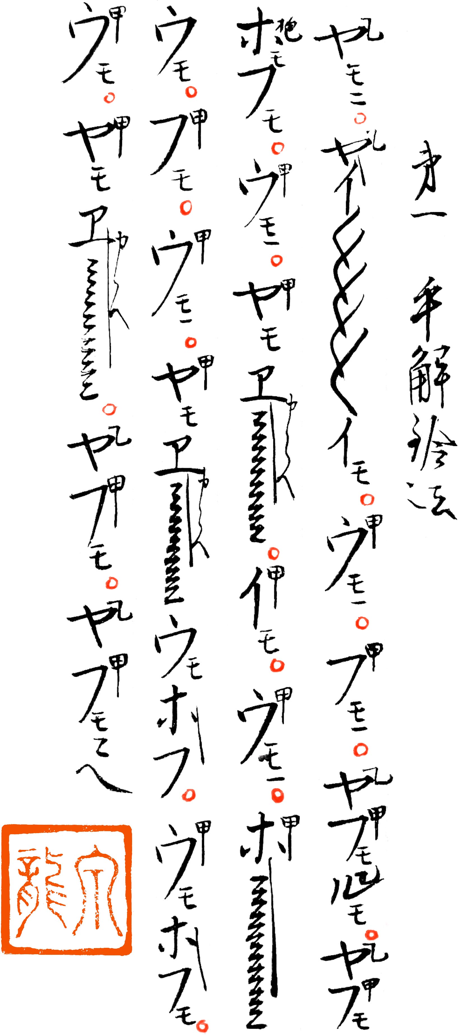 第一 手解鈴法
ヤ乙モニ。ヤ乙イイモ。ウ甲モ一。フ甲モ一。ヤ乙フ甲モモ。ヤ乙フ甲モ
ホモフモ。ウ甲モ一。ヤ甲モヱ。イ甲モ。ウ甲モ一。ホ甲
ウモ。フ甲モ。ウ甲モ一。ヤ甲モヱウモホリフ。ウ甲モホリフモ。
ウ甲モ。ヤ甲モヱ。ヤ乙フ甲モ。ヤ乙フ甲モ
宗龍